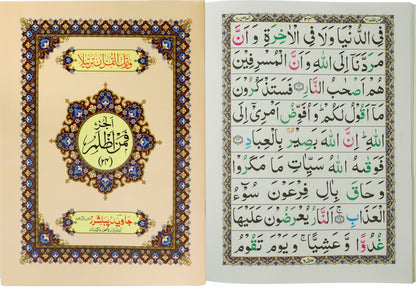 ورتل القرآن ترتيلا
الجزء
فَمَنْ اَظْلَمُ
(٢٤)
جاوید پبلشرز
فِى الدُّنْيَا وَلَا فِى الْاٰخِرَةِ وَ اَنَّ
مَرَدَّنَاۤ اِلَى اللّٰهِ وَ اَنَّ الْمُسْرِفِيْنَ
هُمْ اَصْحٰبُ النَّارِ فَسَتَذْكُرُوْنَ
مَاۤ اَقُوْلُ لَكُمْ وَ اُفَوِّضُ اَمْرِىْۤ اِلَى
اللّٰهِ اِنَّ اللّٰهَ بَصِيْرٌۢ بِالْعِبَادِ
فَوَقٰىهُ اللّٰهُ سَيِّاٰتِ مَا مَكَرُوْا
وَ حَاقَ بِاٰلِ فِرْعَوْنَ سُوْٓءُ
الْعَذَابِ اَلنَّارُ يُعْرَضُوْنَ عَلَيْهَا
غُدُوًّا وَّ عَشِيًّا ۚ وَ يَوْمَ تَقُوْمُ